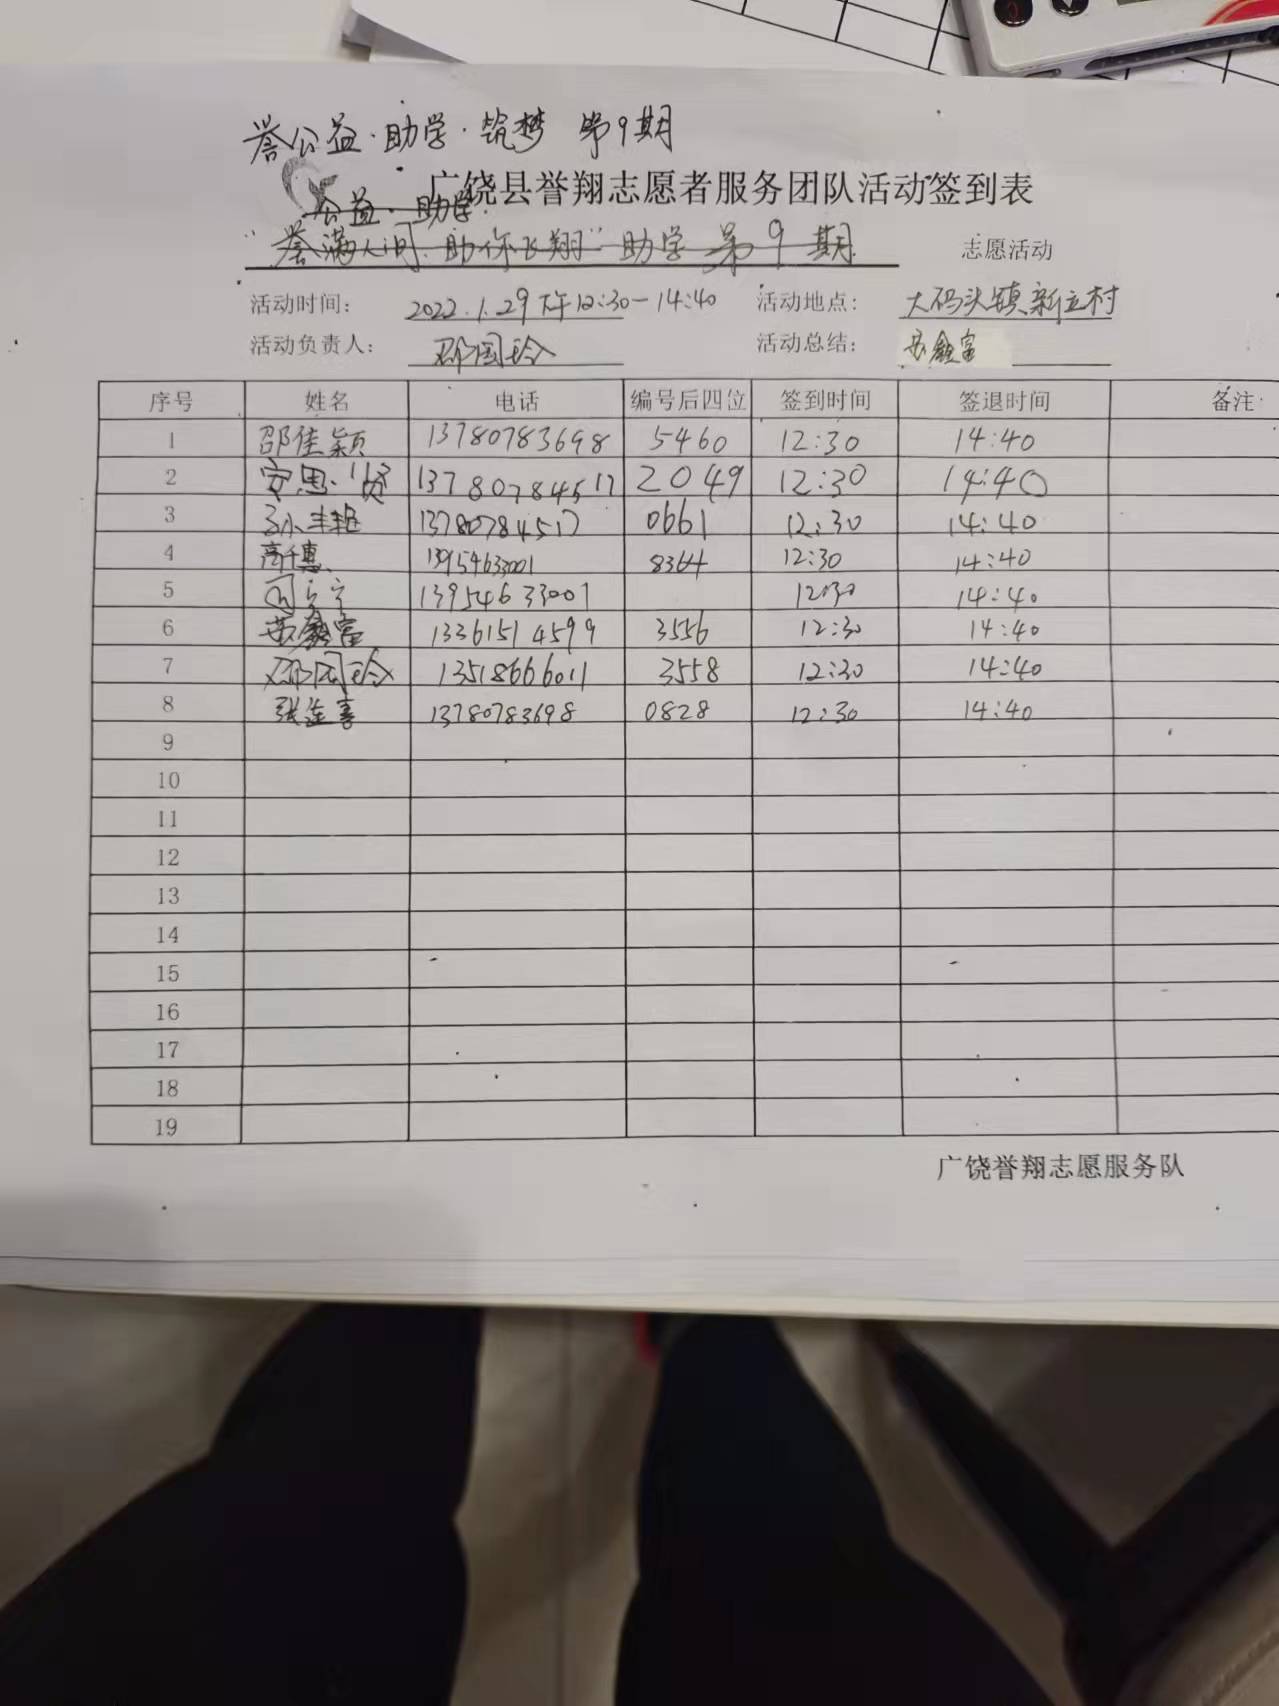 誉公益·助学·筑梦 第9期
广饶县誉翔志愿者服务团队活动签到表
公益·助学
"誉满人间.助你飞翔"助学 第9期 志愿活动
活动时间: 2022.1.29下午12:30-14:40 活动地点: 大码头镇新立村
活动负责人: 邵国玲 活动总结: 鑫富
序号 姓名 电话 编号后四位 签到时间 签退时间 备注
1 邵佳颖 13780783698 5460 12:30 14:40
2 安思贤 13780784517 2049 12:30 14:40
3 13780784517 0661 12:30 14:40
4 高千惠 13954633001 8364 12:30 14:40
5 13954633001 1230 14:40
6 鑫富 13361514599 3556 12:30 14:40
7 邵国玲 13518666011 3558 12:30 14:40
8 张莲喜 13780783698 0828 12:30 14:40
9
10
11
12
13
14
15
16
17
18
19
广饶誉翔志愿服务队